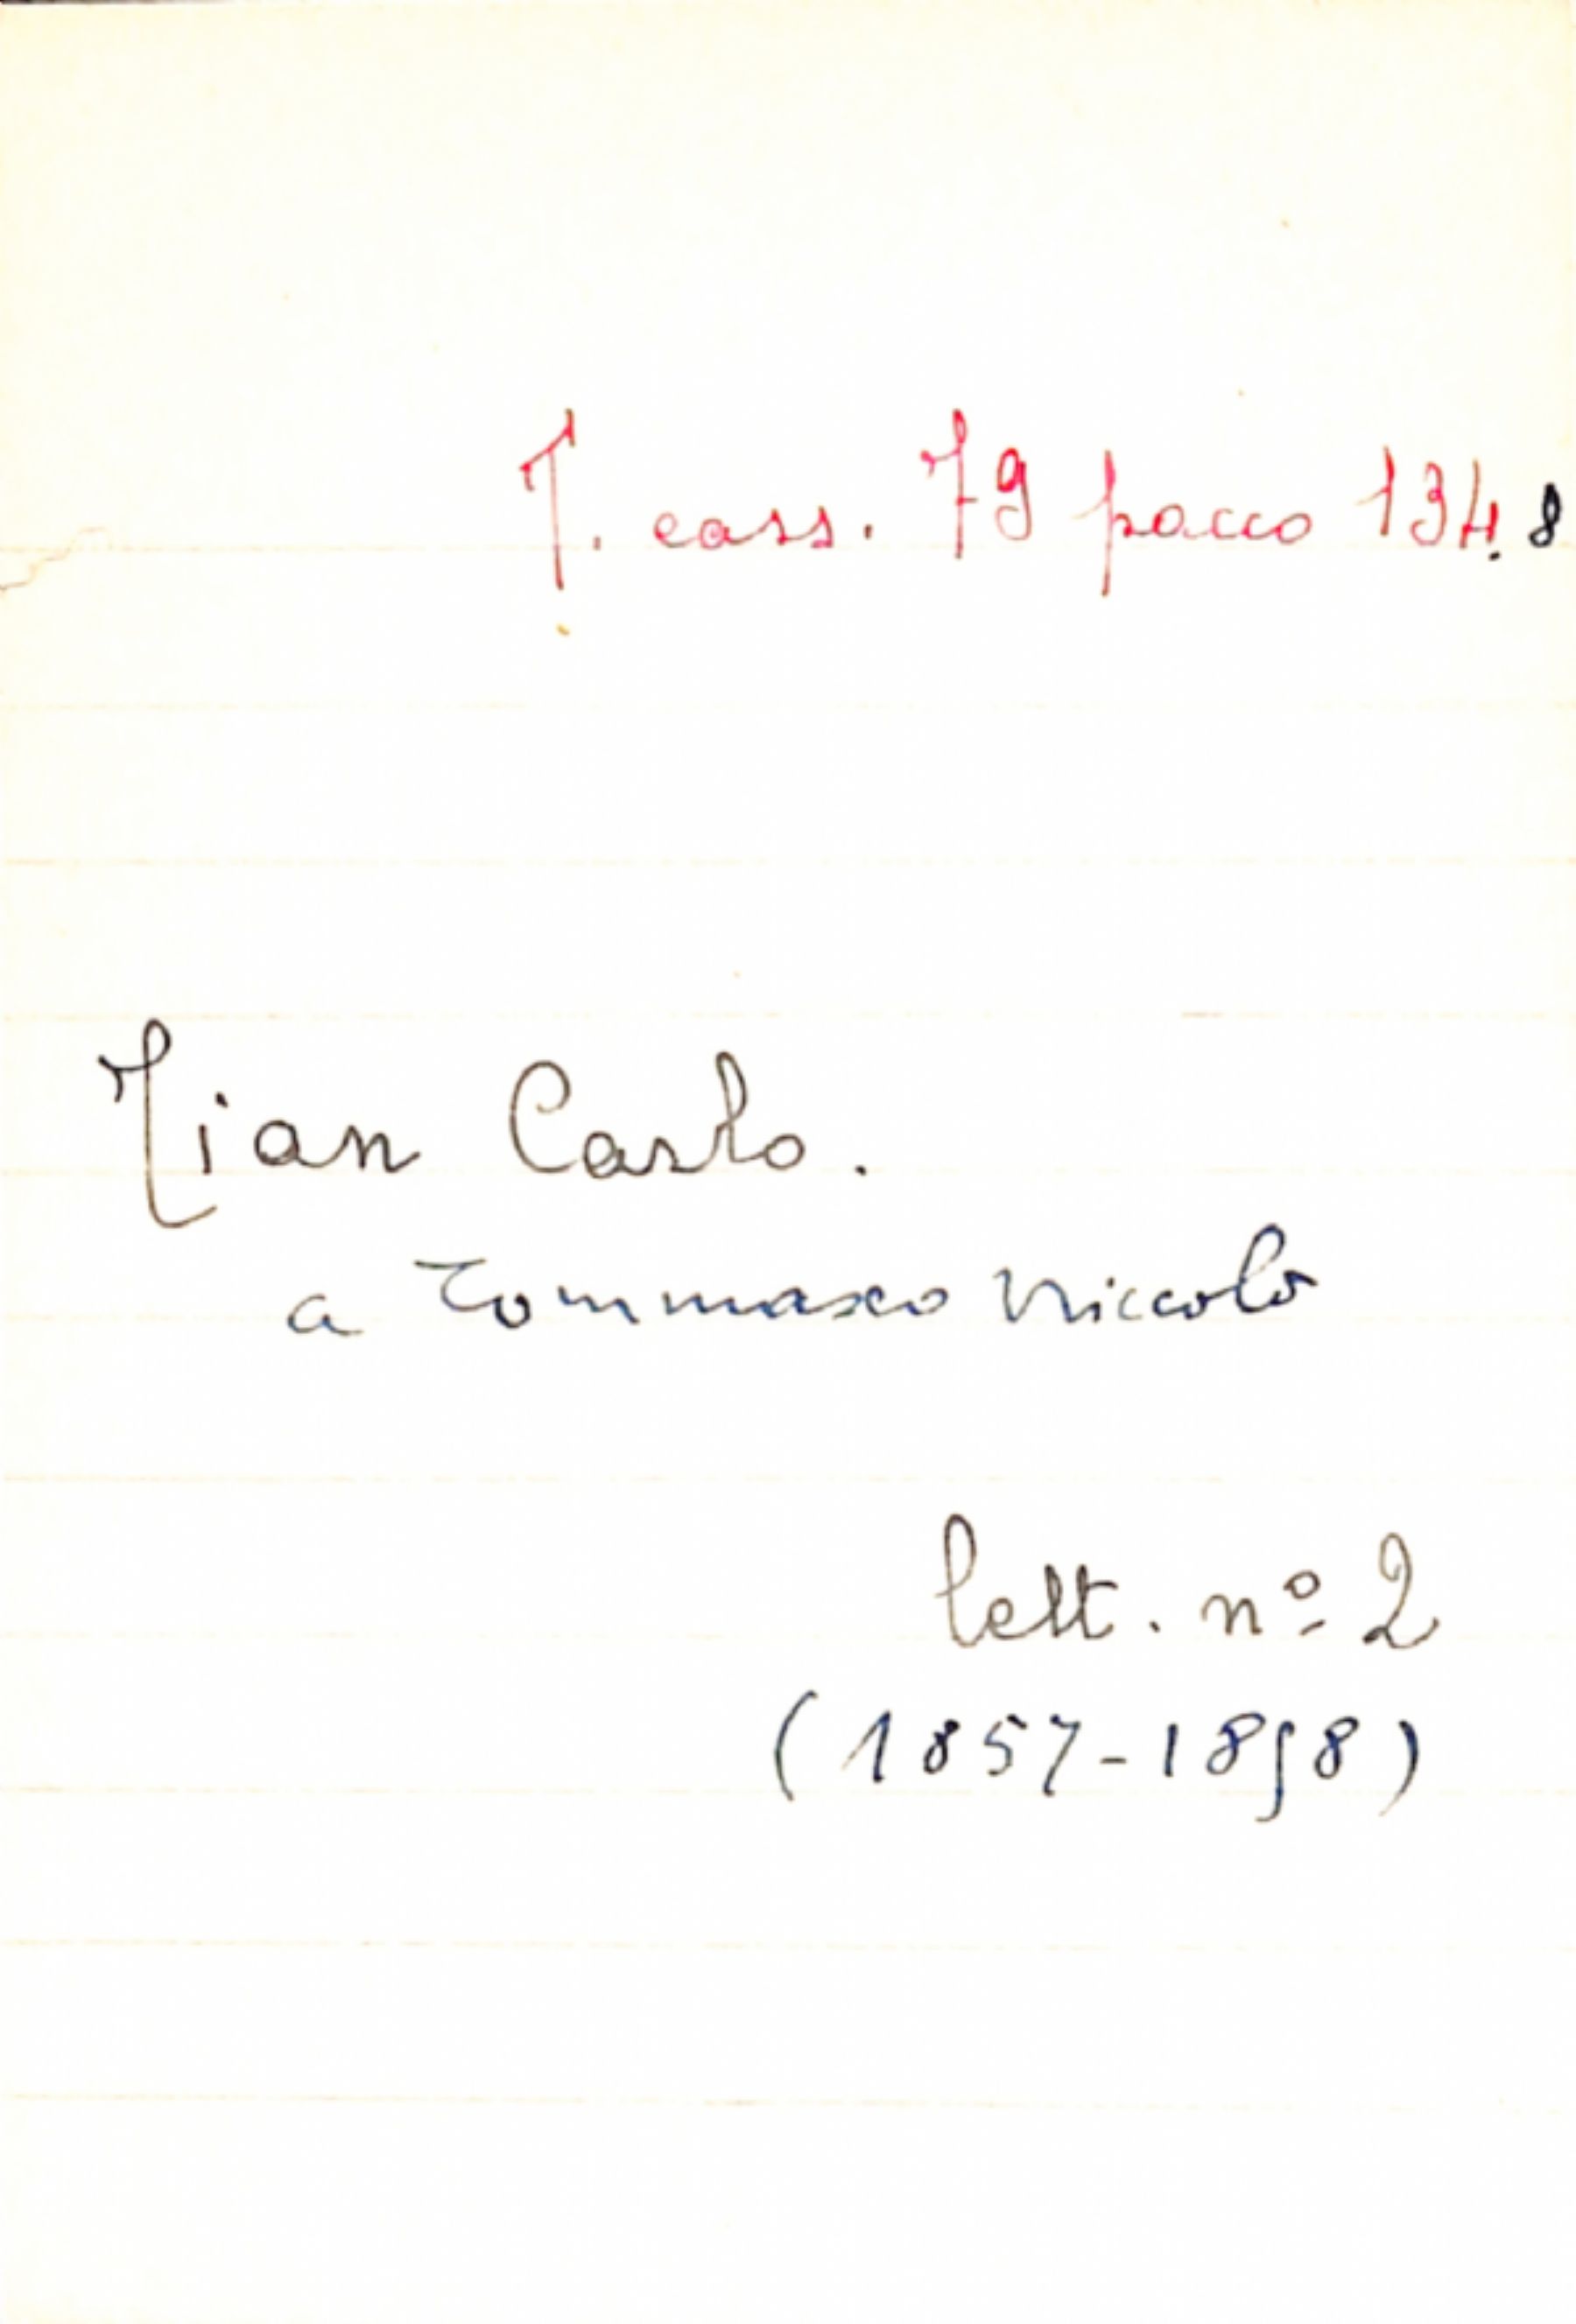 T. cass. 79 pacco 134.8
Tian Carlo.
a Tommaseo Niccolò
lett. nº 2
(1857-1858)